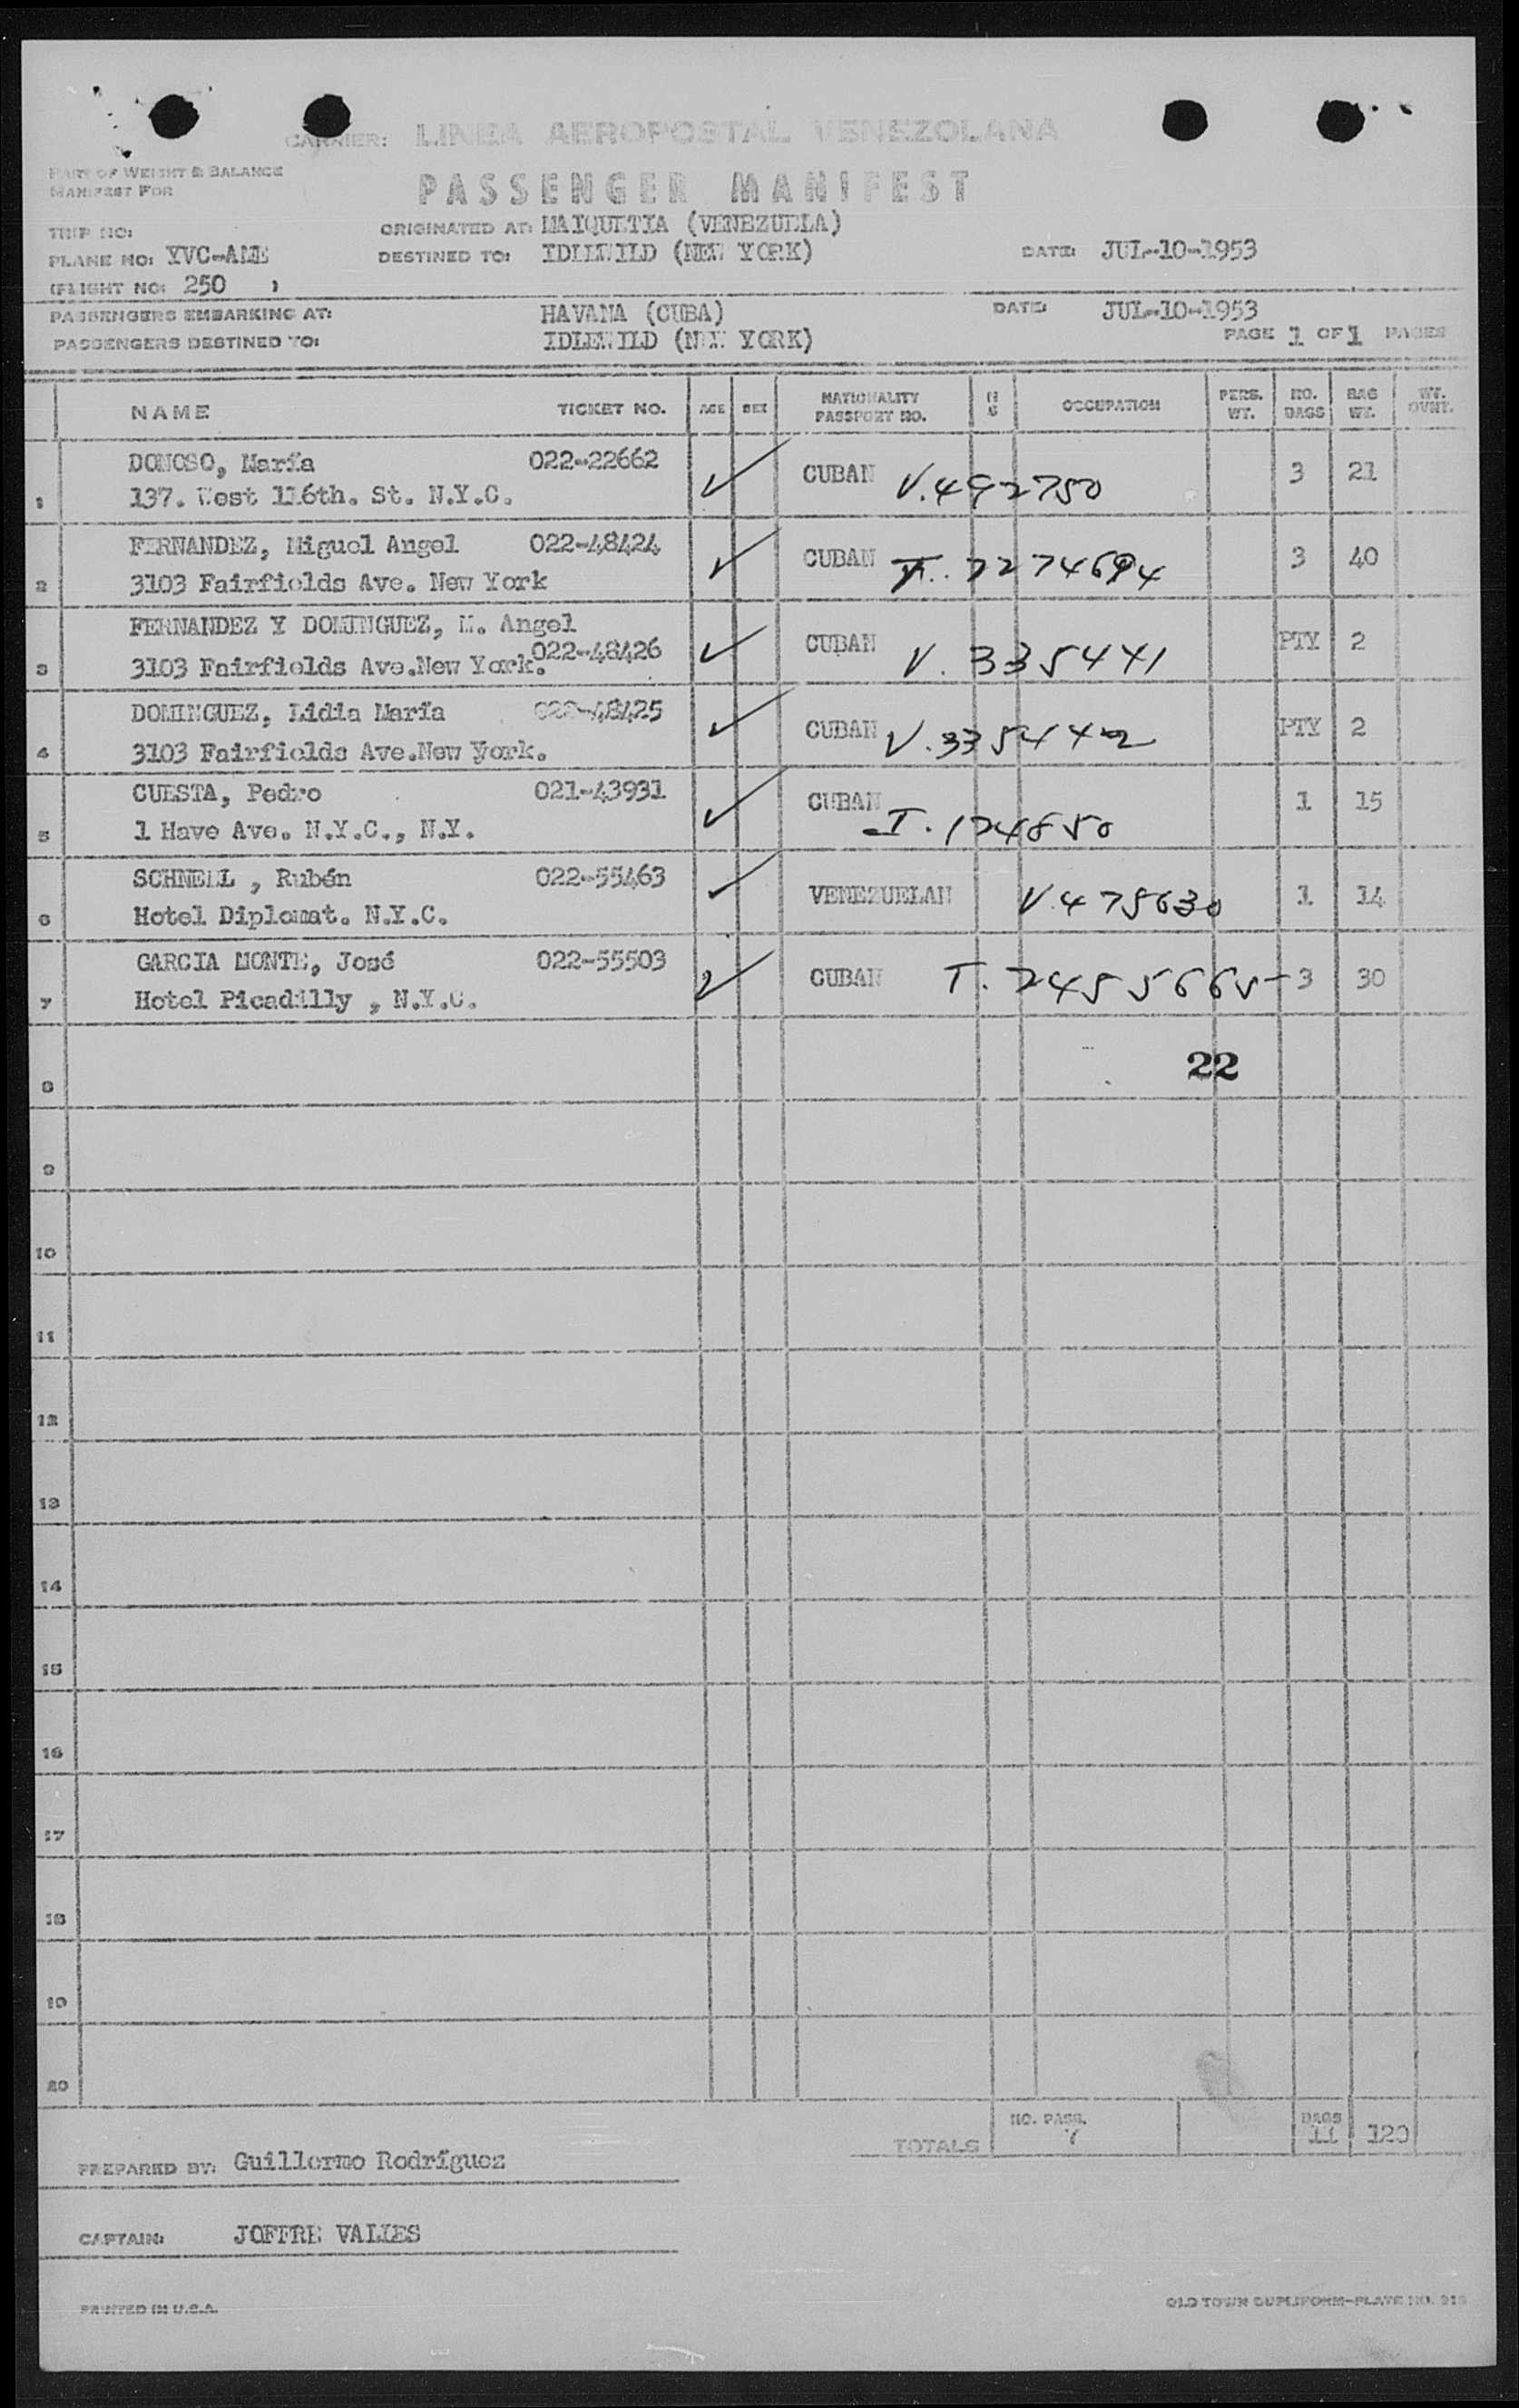 CARRIER: LINEA AEROPOSTAL VENEZOLANA
PART OF WEIGHT & BALANCE
MANIFEST FOR
PASSENGER MANIFEST
TRIP NO:
ORIGINATED AT: MAIQUETIA (VENEZUELA)
PLANE NO: YVC-AME DESTINED TO: IDLEWILD (NEW YORK) DATE: JUL-10-1953
(FLIGHT NO: 250 )
PASSENGERS EMBARKING AT: HAVANA (CUBA) DATE: JUL-10-1953
PASSENGERS DESTINED TO: IDLEWILD (NEW YORK) PAGE 1 OF 1 PAGES
NAME TICKET NO. AGE SEX NATIONALITY PASSPORT NO. OCCUPATION PERS. WT. NO. BAGS BAG WT. WT. OVNT.
DONOSO, María 022-22662 CUBAN V.492750 3 21
1 137. West 116th. St. N.Y.C.
FERNANDEZ, Miguel Angel 022-48424 CUBAN 3 40
2 3103 Fairfields Ave. New York
FERNANDEZ Y DOMINGUEZ, M. Angel
3 3103 Fairfields Ave.New York. 022-48426 CUBAN V. 335441 PTY 2
DOMINGUEZ, Lidia María 022-48425 CUBAN V.335442 PTY 2
4 3103 Fairfields Ave.New york.
CUESTA, Pedro 021-43931 CUBAN I.124850 1 15
5 1 Have Ave. N.Y.C., N.Y.
SCHNELL , Rubén 022-55463 VENEZUELAN V.475630 1 14
6 Hotel Diplomat. N.Y.C.
GARCIA MONTE, José 022-55503 CUBAN T.2455665 3 30
7 Hotel Picadilly , N.Y.C.
22
8
9
10
11
12
13
14
15
16
17
18
19
20
TOTALS NO. PASS. 7 BAGS 11 120
PREPARED BY: Guillermo Rodríguez
CAPTAIN: JOFFRE VALLES
PRINTED IN U.S.A. OLD TOWN DUPLIFORM-PLATE NO.